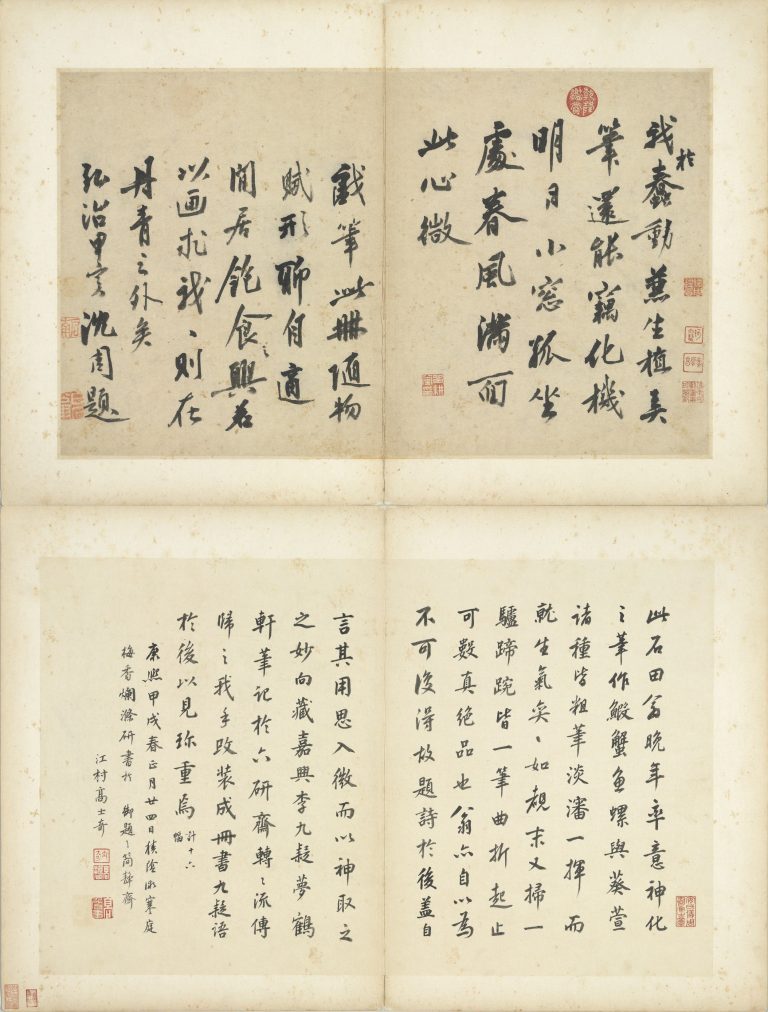 乾隆鑑賞
我於蠢動兼生植弄
筆還能竊化機
明月小窓孤坐
處春風滿面
此心微
戲筆此冊隨物
賦形聊自適
閒居飽食之興若
以画求我々則在
丹青之外矣
弘治甲寅沈周題
此石田翁晚年率意神化
之筆作蝦蟹魚螺與葵萱
諸種皆粗筆淡瀋一揮而
就生氣奕々如覩末又掃一
驢蹄踠皆一筆曲折起止
可數真絕品也翁亦自以為
不可復得故題詩於後蓋自
言其用思入微而以神取之
之妙向藏嘉興李九疑夢鶴
軒筆記於六研齋轉々流傳
歸之我手改裝成冊書九疑語
於後以見珍重焉計十六幅
康熙甲戌春正月廿四日積陰寒庭
梅香爛滌研書於御題簡靜齋
江村高士奇